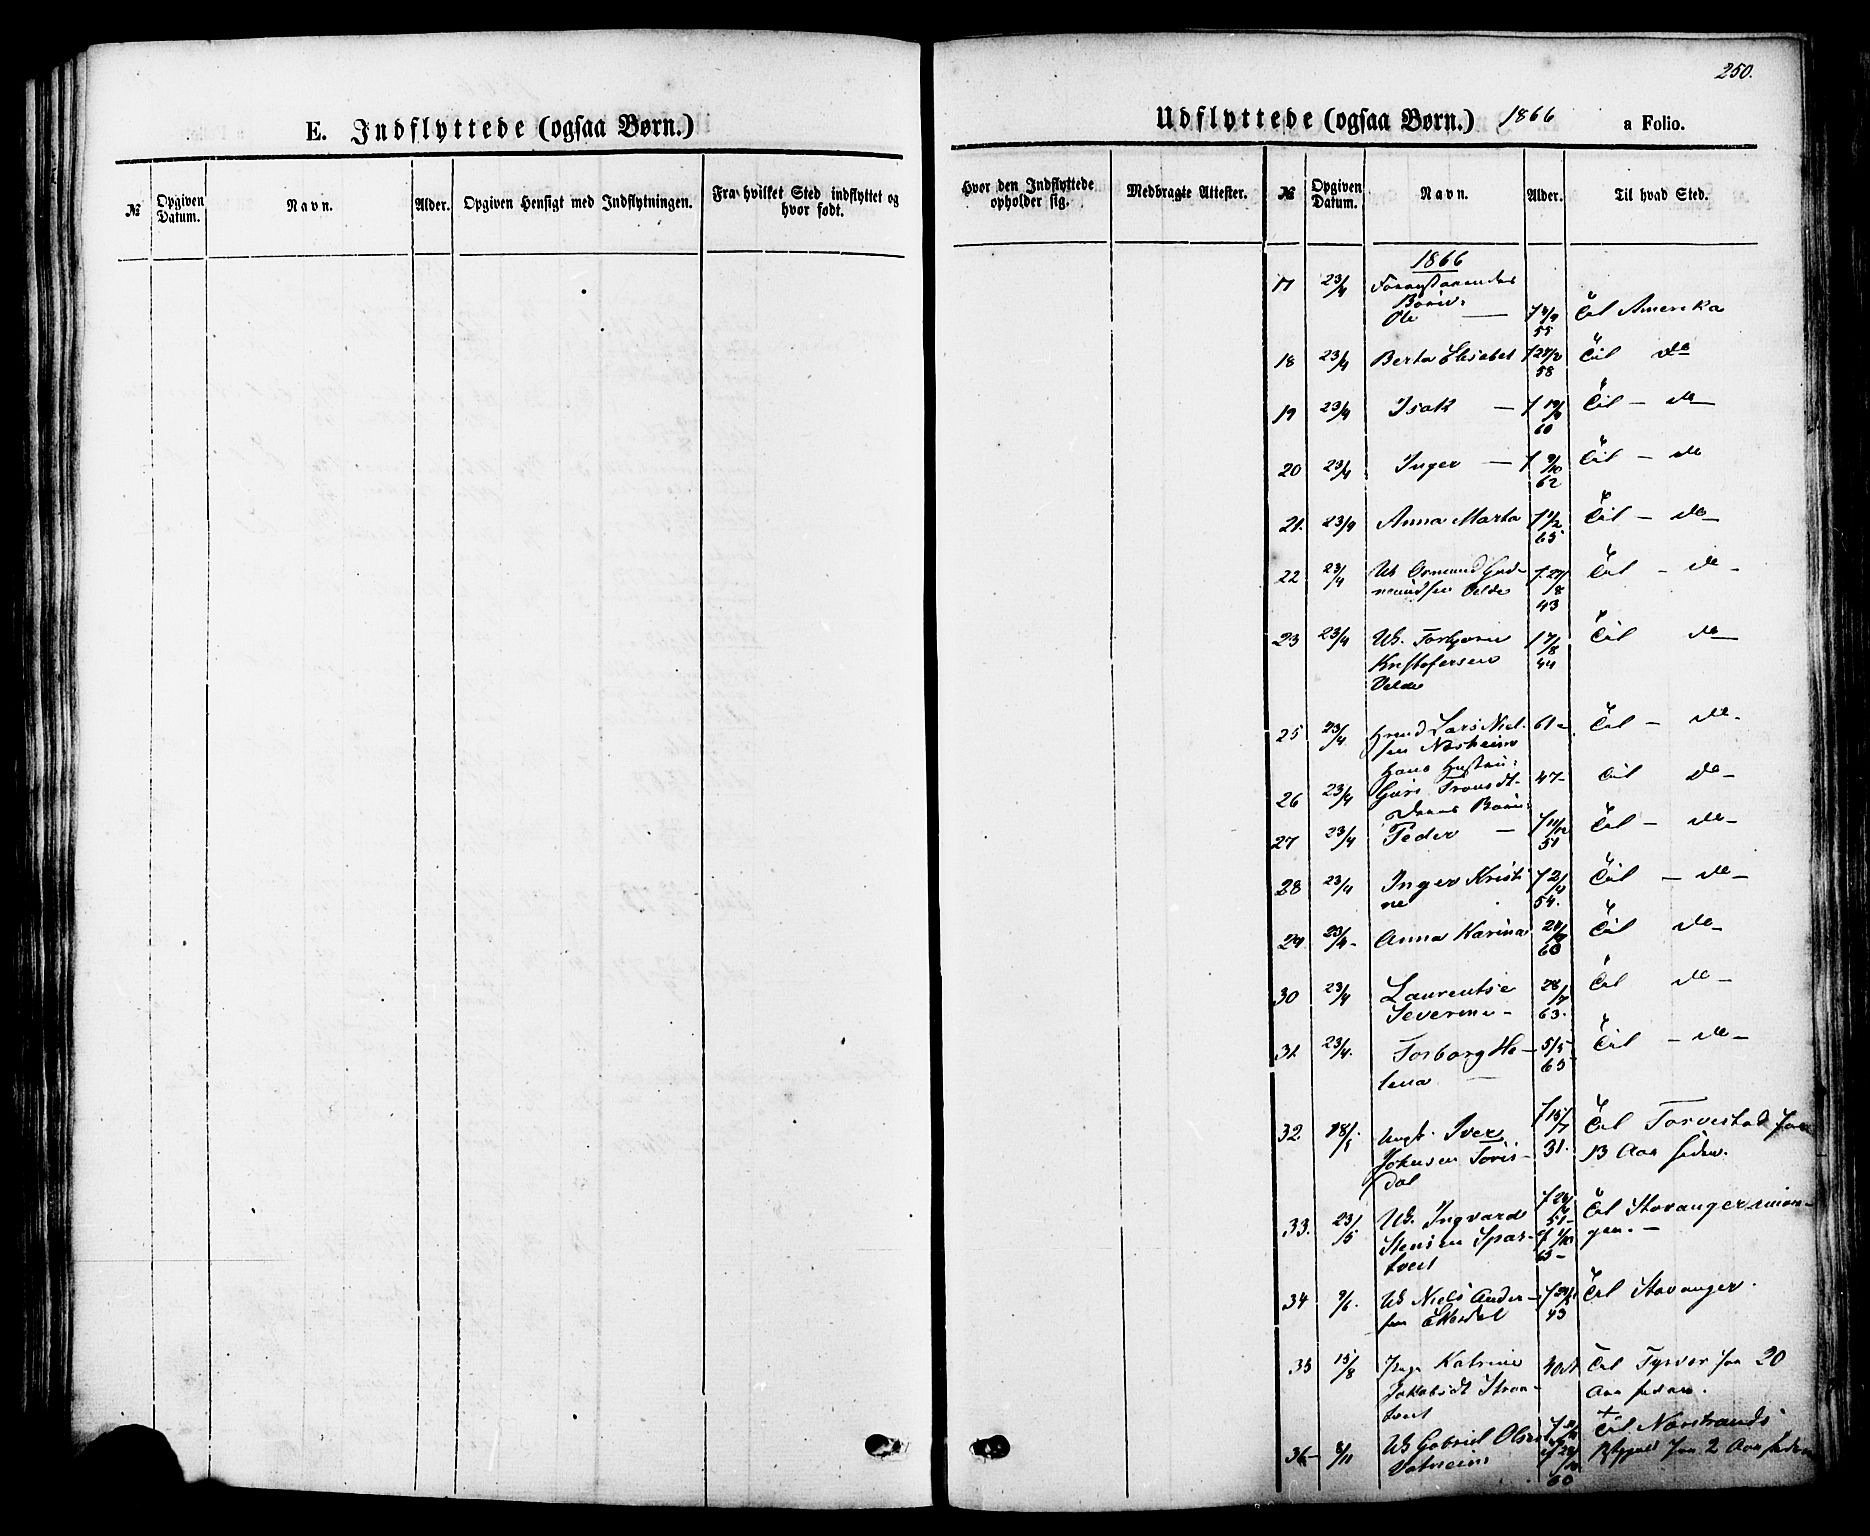 250.
E. Indflyttede (ogsaa Børn.)
№ Opgiven Datum. Navn. Alder. Opgiven Hensigt med Indflytningen. Fra hvilket Sted indflyttet og hvor født.
Udflyttede (ogsaa Børn.) 1866 a Folio.
Hvor den Indflyttede opholder sig. Medbragte Attester. № Opgiven Datum. Navn. Alder. Til hvad Sted.
1866
17 23/4 Foranstaaendes
Børn:
Ole — f 4/9 Til Amerika
55
18 23/4 Berta Elisabet f 24/2 Til do
58
19 23/4 Isak — f 19/9 Til — do —
60
20 23/4 Inger — f 9/10 Til — do
62
21. 23/4 Anna Marta f 1/2 Til — do —
65
22 23/4 Uk Osmund Gud- f 27/8 Til — do —
mundsen Velde
43
23 23/4 Uk. Torbjørn f 17/8 Til do
Kristofersen 44
Velde
25 23/4 Hmd Lars Niel- 61 Til — do —
sen Nesheim
Hans Hustru:
26 23/4 Guri Trondsdt- 47- til do —
Deres Børn:
27 23/4 Peder — f 11/12 Til — do —
51
28 23/4 Inger Kristi f 21/4 Til — do —
ne 54.
29 23/4 — Anna Karina 24/7 Til do —
60
30 23/4 Laurentse 28/7 Til do —
Severine — 63.
31. 23/4. Torborg He — 5/5 Til — do —
lena — 65
32. 18/5 Ungk. Iver f 15/7 Til Torvestad for
Johnsen Toris- 31. 13 Aar siden.
dal
33. 23/5 Uk. Ingvard Til Stavanger
Stensen Spar- 51 —
tveit 65 —
34 9/6. Uk Niels Ander — Til Stavanger.
sen 43
35 15/8 Pige Katrine Til Tysvær for 20
Jakobsdt Aar siden.
36 — 8/11 Uk Gabriel Olsen Til Norstrands
Vatneim 60 Bygd for 2 Aar siden